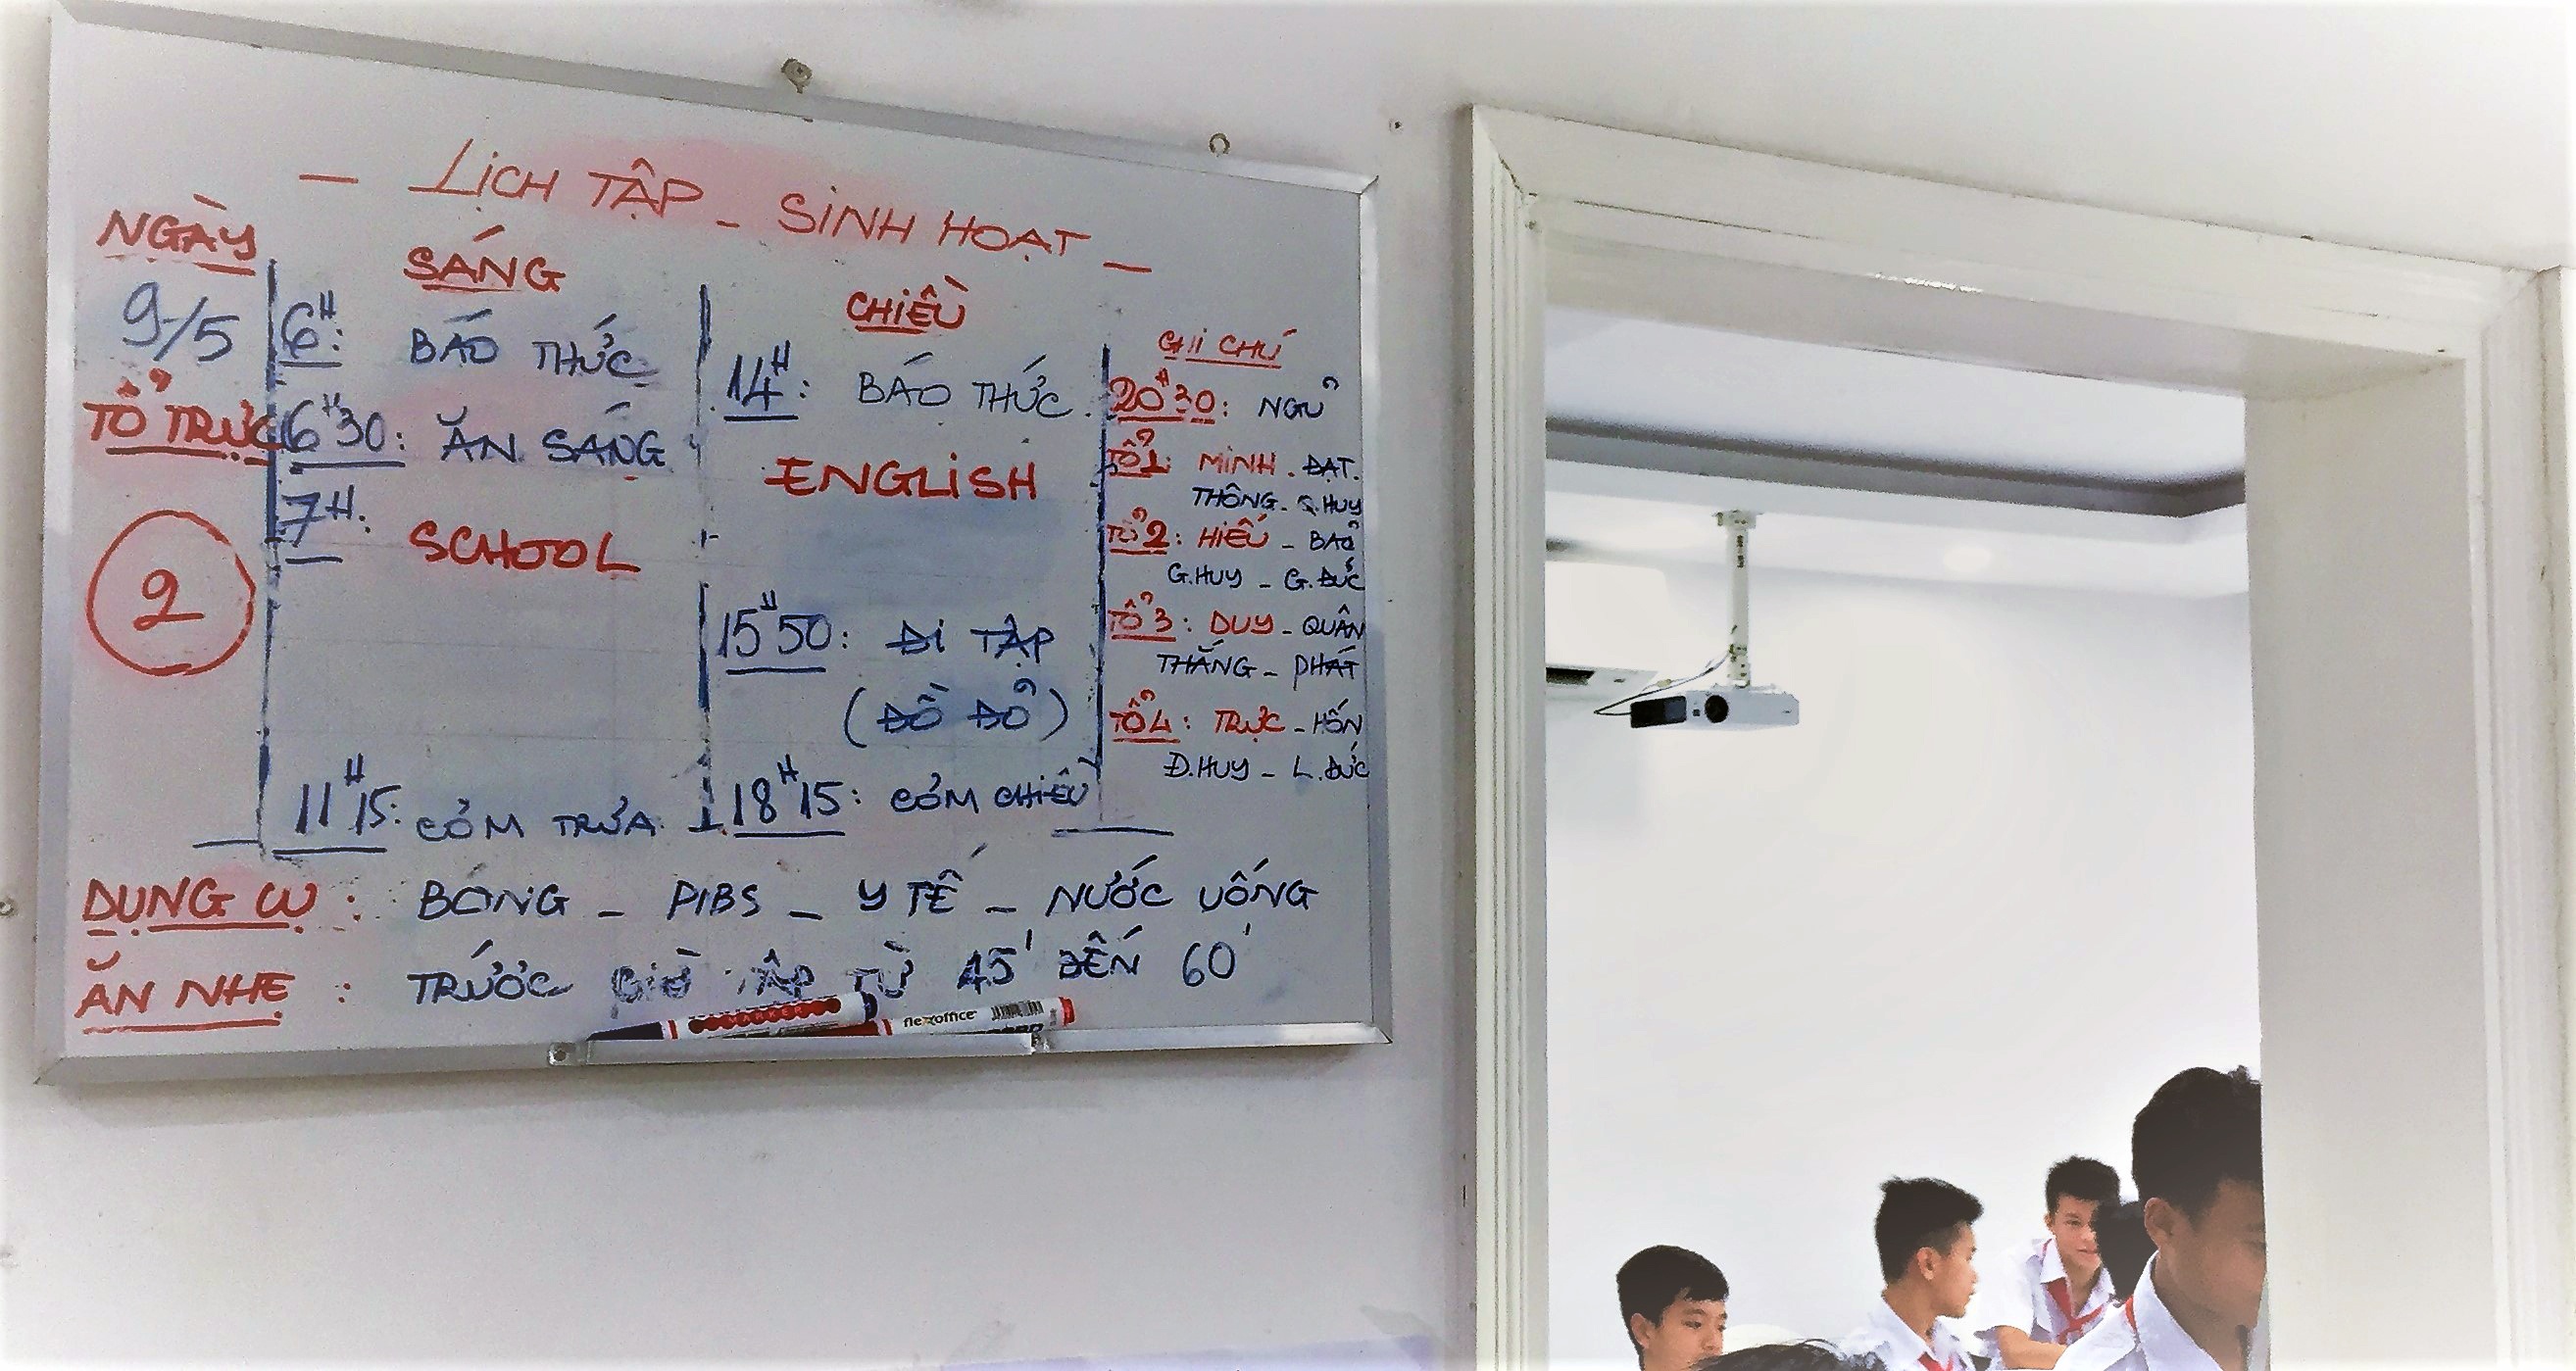 — LỊCH TẬP _ SINH HOẠT —
NGÀY
9/5
TỔ TRỰC
2
SÁNG
6H: BÁO THỨC
6H30: ĂN SÁNG
7H: SCHOOL
11H15: CƠM TRƯA
CHIỀU
14H: BÁO THỨC.
ENGLISH
15H50: ĐI TẬP
(ĐỒ ĐỎ)
18H15: CƠM CHIỀU
GHI CHÚ
20H30: NGỦ
TỔ 1: MINH . ĐẠT.
THÔNG . Q.HUY
TỔ 2: HIẾU _ BẢO
G.HUY _ G.ĐỨC
TỔ 3: DUY _ QUÂN
THẮNG _ PHÁT
TỔ 4: TRỰC _ HÓN
Đ.HUY _ L.ĐỨC
DỤNG CỤ : BÓNG _ PIBS _ Y TẾ _ NƯỚC UỐNG
ĂN NHẸ : TRƯỚC GIỜ TẬP TỪ 45' ĐẾN 60'
MARKER
flexoffice